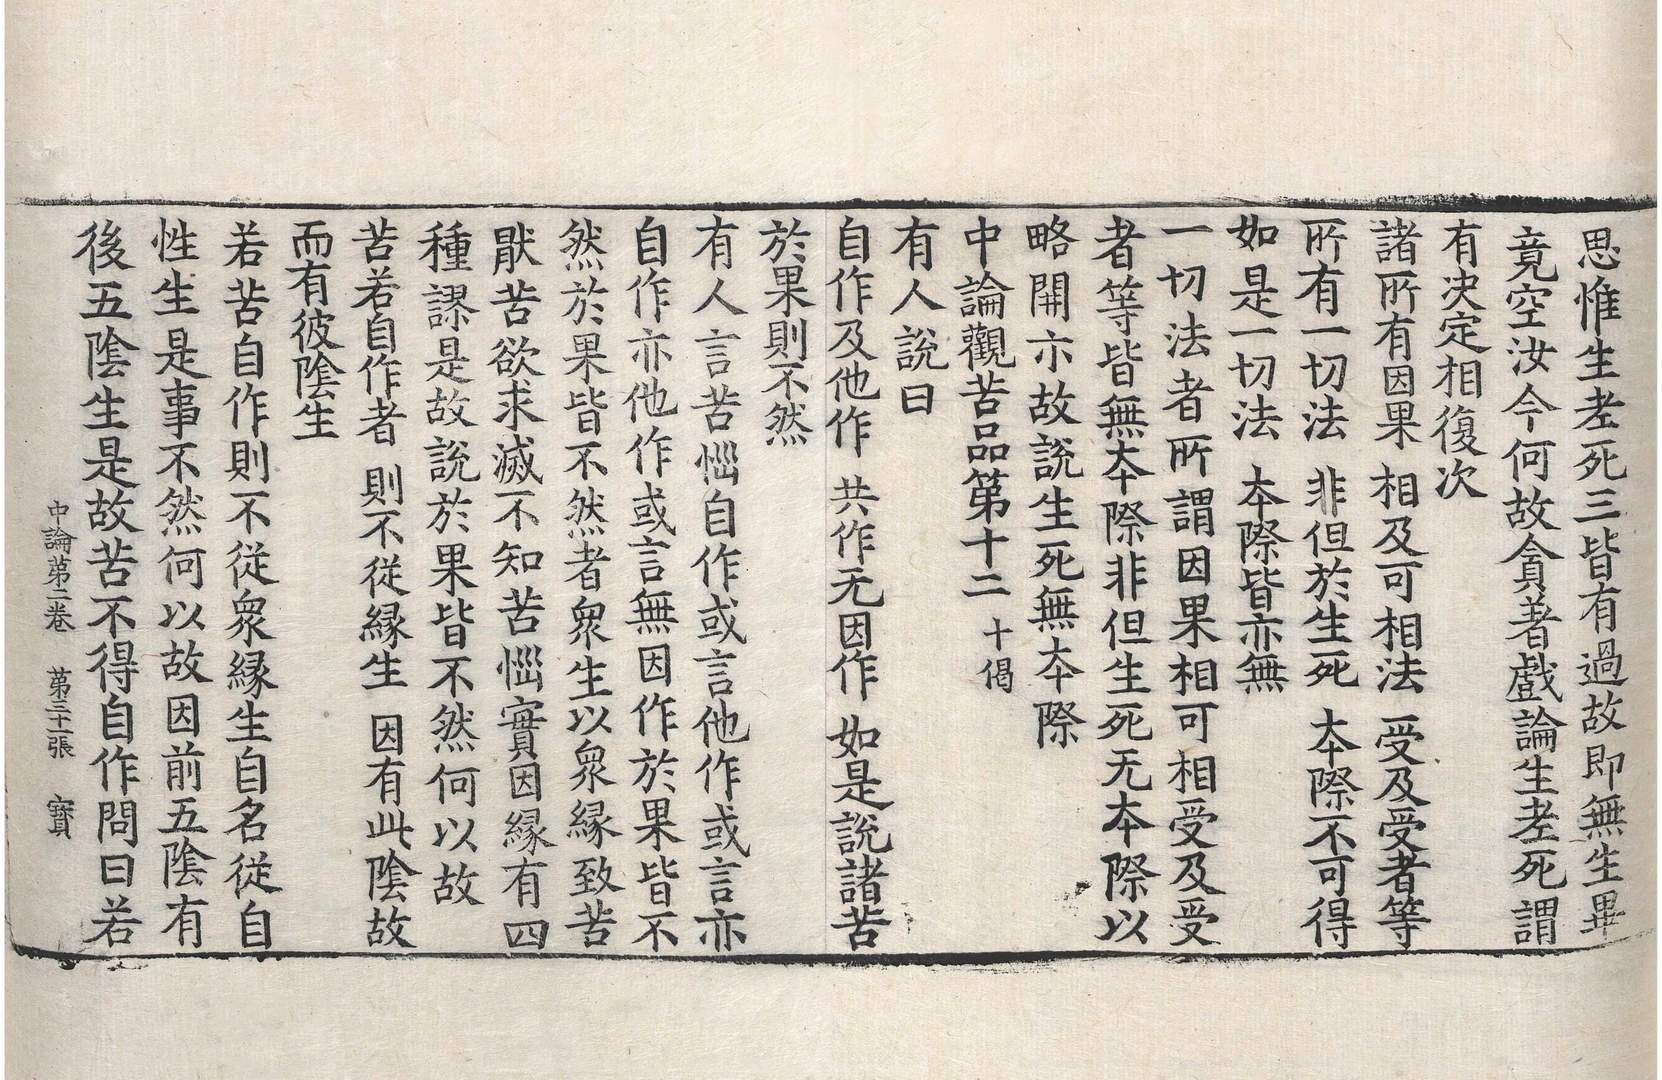 思惟生老死三皆有過故即無生畢
竟空汝今何故貪著戲論生老死謂
有决定相復次
諸所有因果　相及可相法　受及受者等
所有一切法　非但於生死　本際不可得
如是一切法　本際皆亦無
一切法者所謂因果相可相受及受
者等皆無本際非但生死无本際以
略開亦故說生死無本際
中論觀苦品第十二　十偈
有人說曰
自作及他作　共作无因作　如是說諸苦
於果則不然
有人言苦惱自作或言他作或言亦
自作亦他作或言無因作於果皆不
然於果皆不然者衆生以衆緣致苦
猒苦欲求滅不知苦惱實因緣有四
種謬是故說於果皆不然何以故
苦若自作者　則不從緣生　因有此陰故
而有彼陰生
若苦自作則不從衆緣生自名從自
性生是事不然何以故因前五陰有
後五陰生是故苦不得自作問曰若
中論第二卷　第三十一張　寳